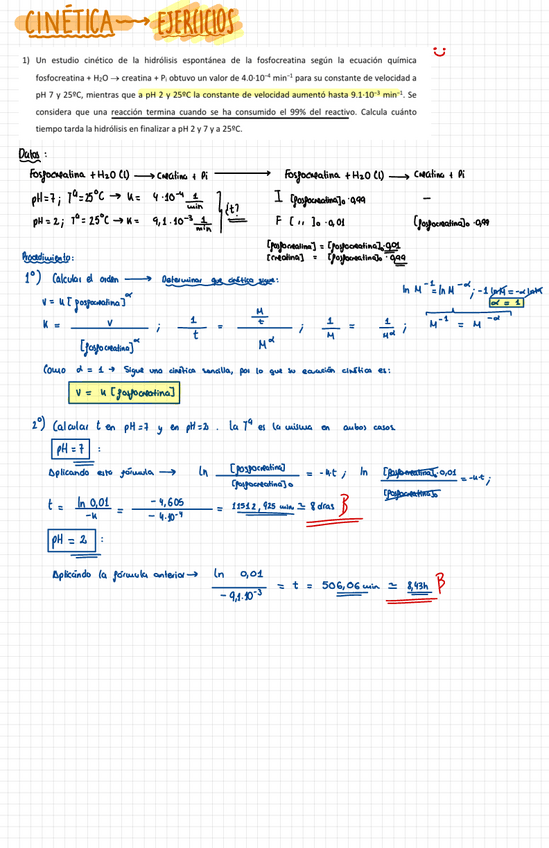 CINÉTICA → EJERCICIOS
1) Un estudio cinético de la hidrólisis espontánea de la fosfocreatina según la ecuación química
fosfocreatina + H₂O → creatina + Pᵢ obtuvo un valor de 4.0·10⁻⁴ min⁻¹ para su constante de velocidad a
pH 7 y 25ºC, mientras que a pH 2 y 25ºC la constante de velocidad aumentó hasta 9.1·10⁻³ min⁻¹. Se
considera que una reacción termina cuando se ha consumido el 99% del reactivo. Calcula cuánto
tiempo tarda la hidrólisis en finalizar a pH 2 y 7 y a 25ºC.
Datos:
Fosfocreatina + H₂O (l) → Creatina + Pi → Fosfocreatina + H₂O (l) → Creatina + Pi
pH=7; Tª=25ºC → k= 4·10⁻⁴ 1/min I [fosfocreatina]₀ · 0,99 —
pH=2; Tª=25ºC → k= 9,1·10⁻³ 1/min } ¿t? F [ '' ]₀ · 0,01 [fosfocreatina]₀ · 0,99
[fosfocreatina] = [fosfocreatina]₀ · 0,01
[creatina] = [fosfocreatina]₀ · 0,99
Procedimiento:
1º) Calcular el orden → Determinar que cinética sigue:
ln M⁻¹ = ln M⁻ᵅ ; -1 ln M = -α ln M
α = 1
v = k [fosfocreatina]ᵅ
k = v / [fosfocreatina]ᵅ ; 1/t = (M/t) / Mᵅ ; 1/M = 1/Mᵅ ; M⁻¹ = M⁻ᵅ
Como α = 1 → Sigue una cinética sencilla, por lo que su ecuación cinética es:
v = k [fosfocreatina]
2º) Calcular t en pH=7 y en pH=2. La Tª es la misma en ambos casos
pH = 7 :
Aplicando esta fórmula → ln [fosfocreatina] / [fosfocreatina]₀ = -kt ; ln [fosfocreatina]₀ · 0,01 / [fosfocreatina]₀ = -kt ;
t = ln 0,01 / -k = -4,605 / -4·10⁻⁴ = 11512,925 min ≃ 8 días B
pH = 2 :
Aplicando la fórmula anterior → ln 0,01 / -9,1·10⁻³ = t = 506,06 min ≃ 8,43h B